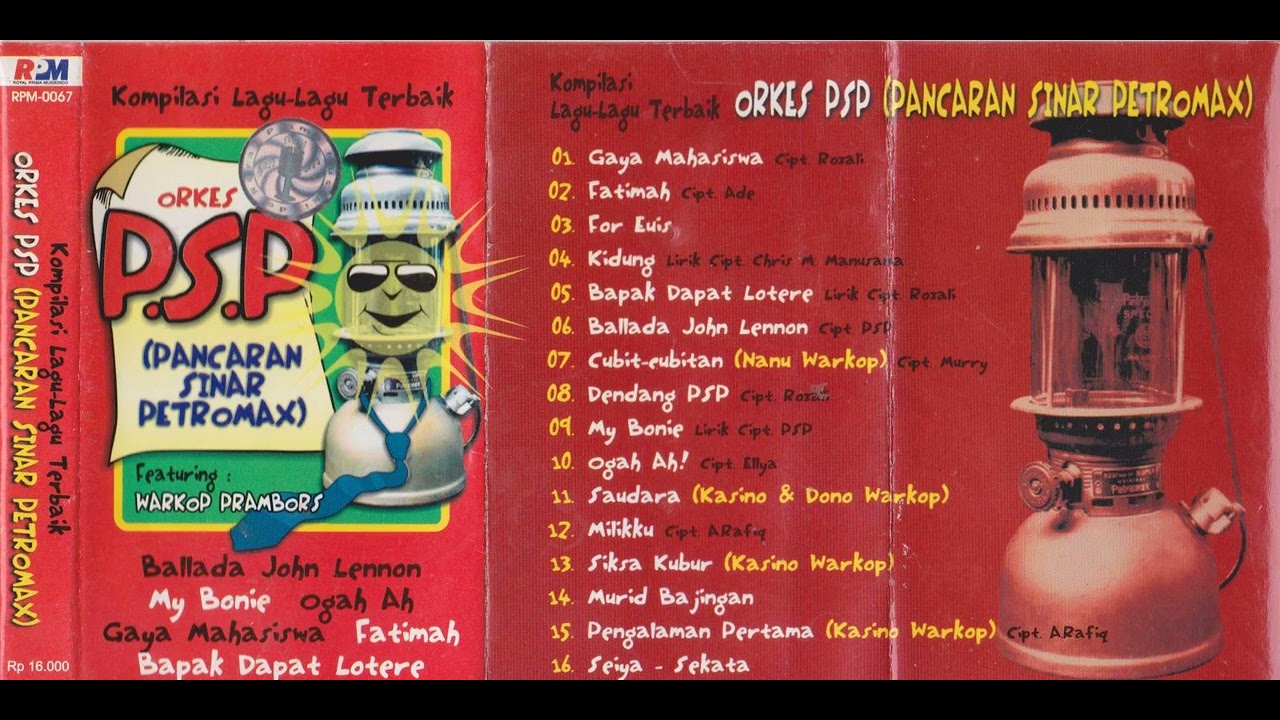 RPM
ROYAL PRIMA MUSIKINDO
RPM-0067
Kompilasi Lagu-Lagu Terbaik
ORKES PSP (PANCARAN SINAR PETROMAX)
Rp 16.000
Kompilasi Lagu-Lagu Terbaik
ORKES
P.S.P
(PANCARAN
SINAR
PETROMAX)
Featuring :
WARKOP PRAMBORS
Ballada John Lennon
My Bonie Ogah Ah
Gaya Mahasiswa Fatimah
Bapak Dapat Lotere
Kompilasi
Lagu-Lagu Terbaik ORKES PSP (PANCARAN SINAR PETROMAX)
01. Gaya Mahasiswa Cipt. Rozali
02. Fatimah Cipt. Ade
03. For Euis
04. Kidung Lirik Cipt. Chris M. Manusama
05. Bapak Dapat Lotere Lirik Cipt. Rozali
06. Ballada John Lennon Cipt. PSP
07. Cubit-cubitan (Nanu Warkop) Cipt. Murry
08. Dendang PSP Cipt. Rozali
09. My Bonie Lirik Cipt. PSP
10. Ogah Ah! Cipt. Ellya
11. Saudara (Kasino & Dono Warkop)
12. Milikku Cipt. A.Rafiq
13. Siksa Kubur (Kasino Warkop)
14. Murid Bajingan
15. Pengalaman Pertama (Kasino Warkop) Cipt. A.Rafiq
16. Seiya - Sekata
Petromax